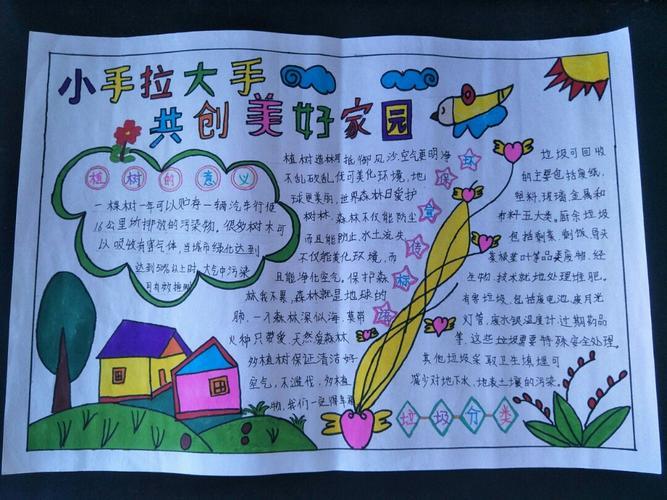 小手拉大手
共创美好家园
植树的意义
一棵树一年可以贮存一辆汽车行使
16公里所排放的污染物。很多树木可
以吸收有害气体,当城市绿化达到
达到50%以上时,大气中污染
可有效控制
植树造林能抵御风沙空气更明净
不乱砍乱伐可美化环境,地
球更美丽,世界森林日爱护
树林。森林不仅能防尘
而且能防止水土流失
不仅能美化环境,而
且能净化空气。保护森
林我不累,森林就是地球的
肺,一个森林深似海,莫将
火种只带爱,天然爱森林
多植树保证清洁好
空气,不滥伐,多植
物,我们一定得幸福
垃圾可回收
的主要包括废纸,
塑料,玻璃,金属和
布料五大类。厨余垃圾
包括剩菜,剩饭,骨头
菜根菜叶等品类废物,经
生物技术就地处理堆肥。
有害垃圾,包括废电池,废日光
灯管,废水银温度计,过期药品
等,这些垃圾需要特殊安全处理。
其他垃圾采取卫生填埋可
减少对地下水,地表土壤的污染。
垃圾分类